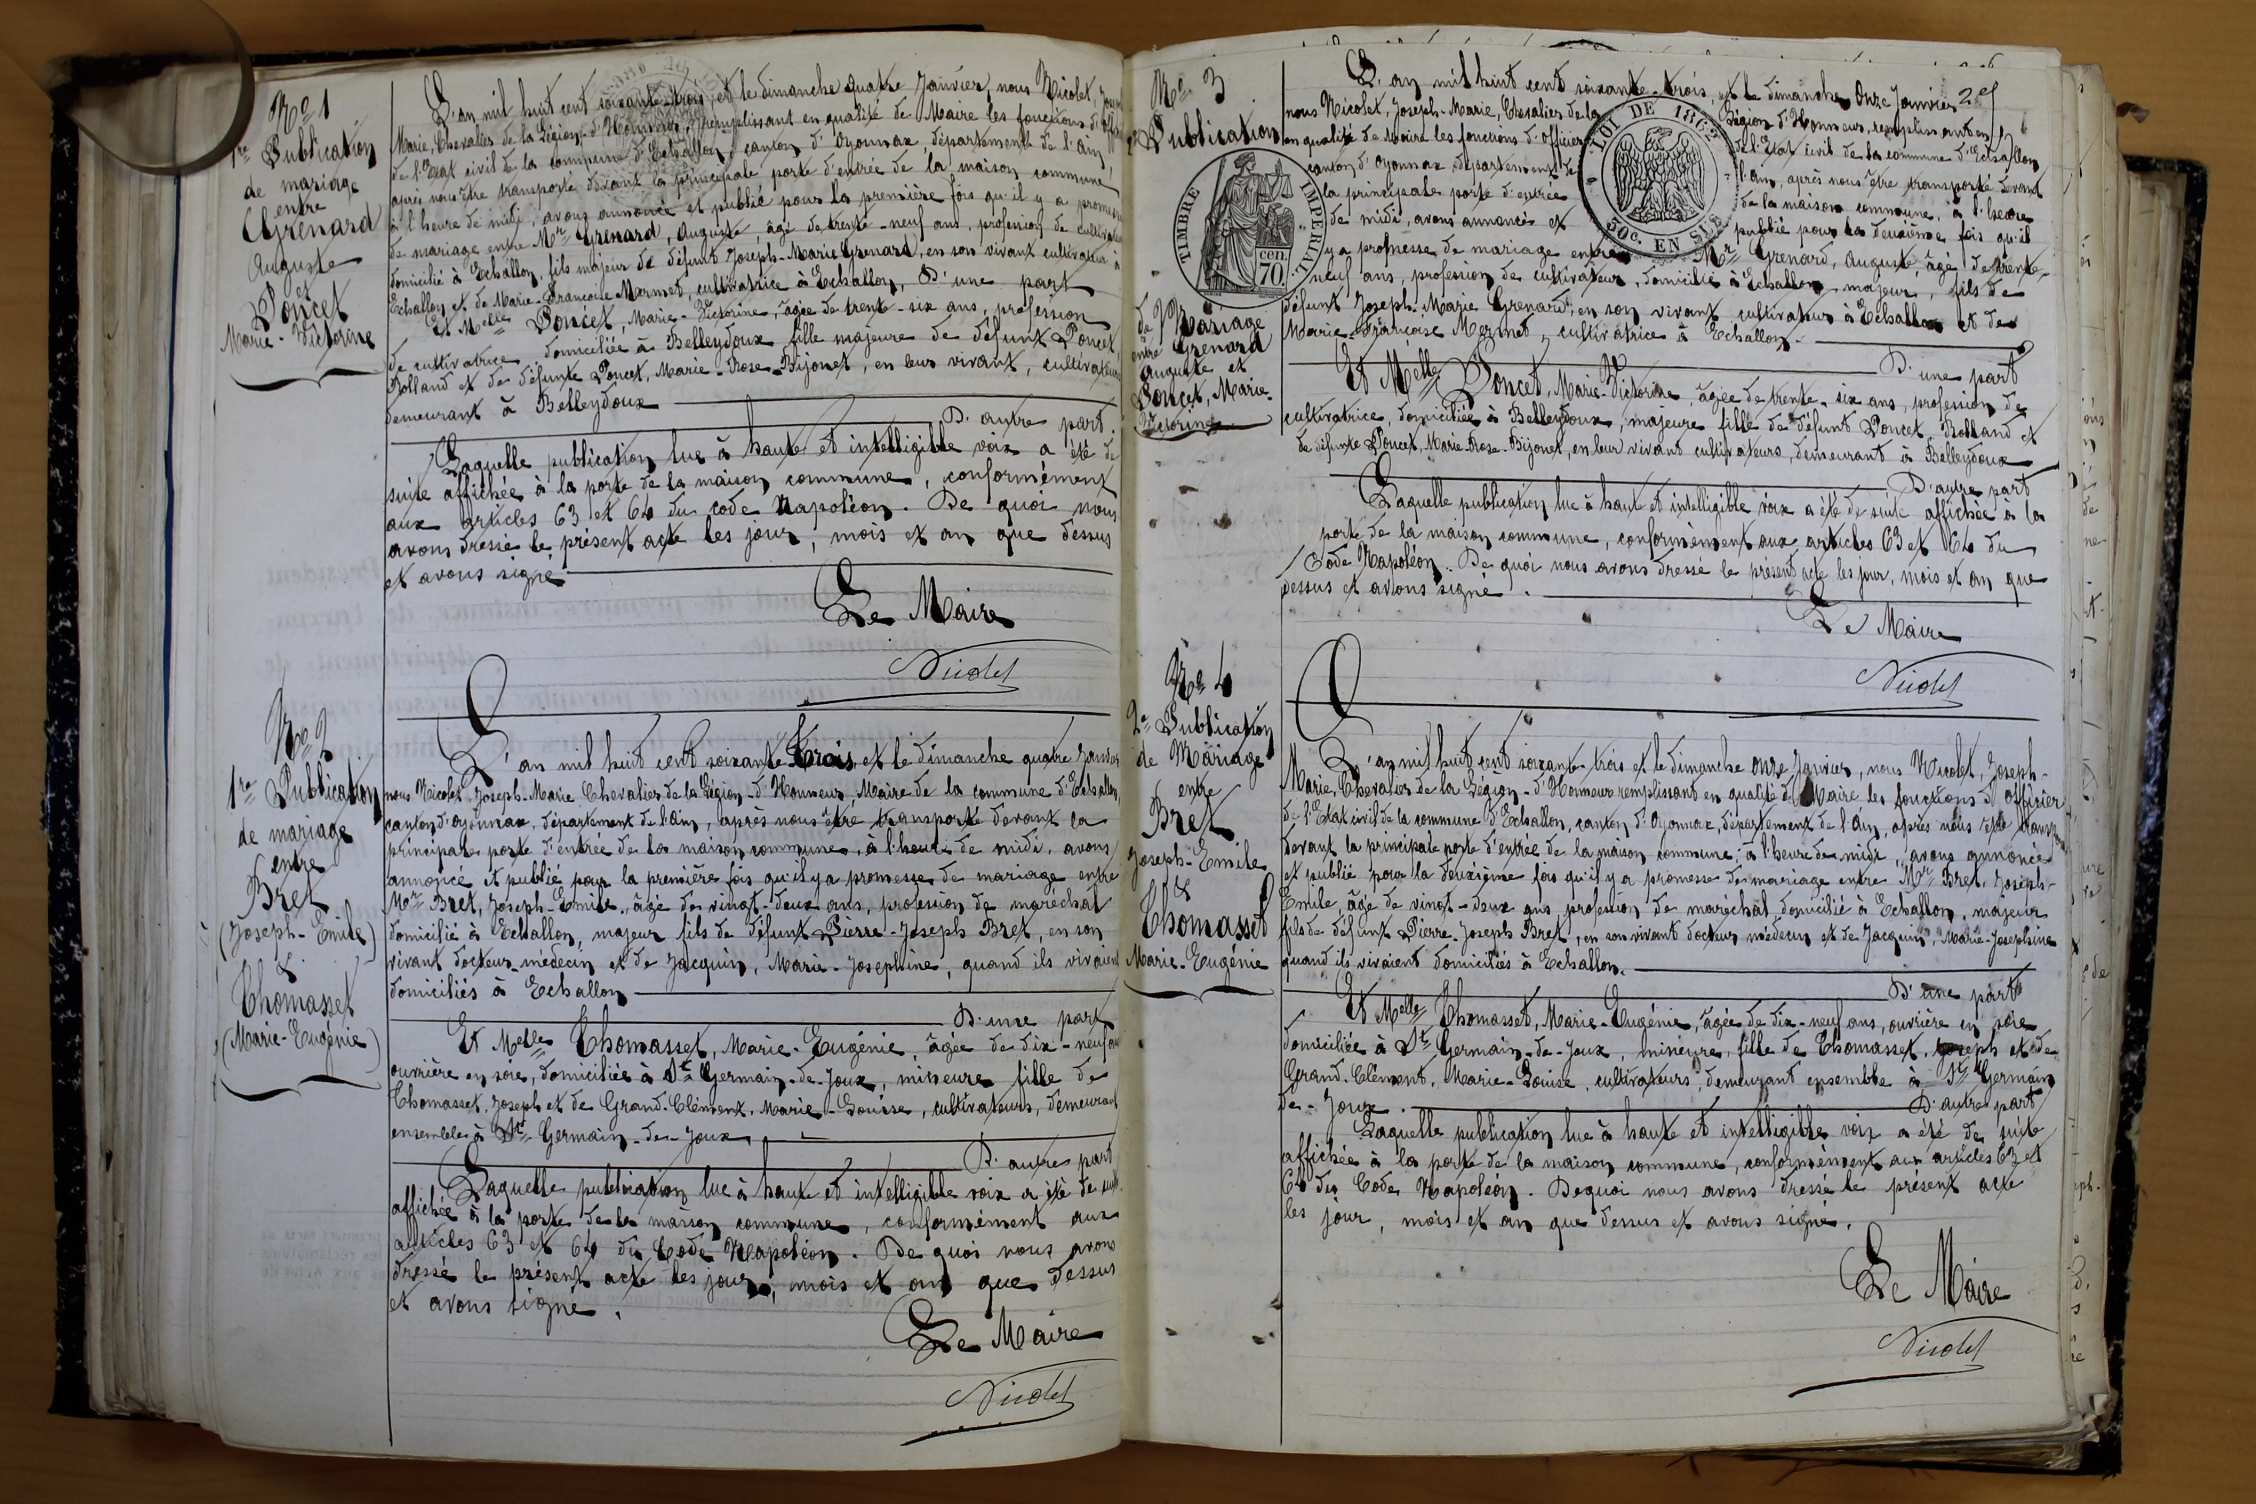 No 1
1re Publication
de mariage
entre
Grenard
Auguste
et
Poncet
Marie-Victorine
L'an mil huit cent soixante-trois, et le dimanche quatre Janvier, nous Nicolet,
Marie, Chevalier de la Légion-d'Honneur, remplissant en qualité de Maire les fonctions d'
de l'Etat civil de la commune d'Echallon, canton d'Oyonnax, département de l'ain,
après nous être transporté devant la principale porte d'entrée de la maison commune,
à l'heure de midi, avons annoncé et publié pour la première fois qu'il y a promesse
de mariage entre Mr Grenard, Auguste, âgé de trente-neuf ans, profession de cultivateur
domicilié à Echallon, fils majeur de défunt Joseph-Marie Grenard, en son vivant cultivateur à
Echallon et de Marie-Françoise Mermet, cultivatrice à Echallon, D'une part
Et Melle Poncet, Marie-Victorine, âgée de trente-six ans, profession
de cultivatrice, domiciliée à Belleydoux fille majeure de défunt Poncet,
Rolland et de défunte Poncet, Marie-Rose-Bijonet, en leur vivant, cultivateurs
demeurant à Belleydoux
D'autre part.
Laquelle publication lue à haute et intelligible voix a été de
suite affichée à la porte de la maison commune, conformément
aux articles 63 et 64 du code Napoléon. De quoi nous
avons dressé le présent acte les jour, mois et an que dessus
et avons signé
Le Maire
Nicolet
No 2
1re Publication
de mariage
entre
Bret
(Joseph-Emile)
&
Thomasset
(Marie-Eugénie)
L'an mil huit cent soixante trois, et le dimanche quatre Janvier
nous Nicolet, Joseph-Marie Chevalier de la Légion-d'Honneur, Maire de la commune d'Echallon,
canton d'oyonnax, département de l'ain, après nous être transporté devant la
principale porte d'entrée de la maison commune, à l'heure de midi, avons
annoncé et publié pour la première fois qu'il y a promesse de mariage entre
Mr Bret, Joseph-Emile, âgé de vingt-deux ans, profession de maréchal
domicilié à Echallon, majeur fils de défunt Pierre-Joseph Bret, en son
vivant docteur-médecin et de Jacquin, Marie-Josephine, quand ils vivaient
domiciliés à Echallon
D'une part
Et Melle Thomasset, Marie-Eugénie, âgée de dix-neuf ans
ouvrière en soie, domiciliée à St Germain-de-Joux, mineure fille de
Thomasset, Joseph et de Grand-Clément, Marie-Louise, cultivateurs, demeurant
ensemble à St Germain-de-Joux
D'autre part
Laquelle publication lue à haute et intelligible voix a été de suite
affichée à la porte de la maison commune, conformément aux
articles 63 et 64 du Code Napoléon. De quoi nous avons
dressé le présent acte les jour, mois et an que dessus
et avons signé.
Le Maire
Nicolet
No 3
2e Publication
de Mariage
entre Grenard
Auguste et
Poncet, Marie-
Victorine
TIMBRE IMPÉRIAL
70 cen.
LOI DE 1862
50c. EN SUS
L'an mil huit cent soixante-trois, et le dimanche Onze Janvier
nous Nicolet, Joseph-Marie, Chevalier de la Légion d'Honneur, remplissant en
en qualité de Maire les fonctions d'Officier de l'Etat civil de la commune d'Echallon
canton d'Oyonnax département de l'ain, après nous être transporté devant
la principale porte d'entrée de la maison commune, à l'heure
de midi, avons annoncé et publié pour la deuxième fois qu'il
y a promesse de mariage entre Mr Grenard, Auguste, âgé de trente-
neuf ans, profession de cultivateur, domicilié à Echallon, majeur, fils de
défunt Joseph-Marie Grenard, en son vivant cultivateur à Echallon et de
Marie-Françoise Mermet, cultivatrice à Echallon.
D'une part
Et Melle Poncet, Marie-Victorine, âgée de trente-six ans, profession de
cultivatrice, domiciliée à Belleydoux, majeure fille de défunt Poncet, Rolland et
de défunte Poncet, Marie-Rose-Bijonet, en leur vivant cultivateurs, demeurant à Belleydoux
D'autre part
Laquelle publication lue à haute et intelligible voix a été de suite affichée à la
porte de la maison commune, conformément aux articles 63 et 64 du
Code Napoléon. De quoi nous avons dressé le présent acte les jour, mois et an que
dessus et avons signé.
Le Maire
Nicolet
No 4
2e Publication
de Mariage
entre
Bret
Joseph-Emile
&
Thomasset
Marie-Eugénie
L'an mil huit cent soixante-trois et le dimanche onze Janvier, nous Nicolet, Joseph-
Marie, Chevalier de la Légion-d'Honneur remplissant en qualité de Maire les fonctions d'officier
de l'Etat civil de la commune d'Echallon, canton d'Oyonnax, département de l'Ain, après nous être transporté
devant la principale porte d'entrée de la maison commune, à l'heure de midi, avons annoncé
et publié pour la deuxième fois qu'il y a promesse de mariage entre Mr Bret, Joseph-
Emile, âgé de vingt-deux ans, profession de maréchal, domicilié à Echallon, majeur
fils de défunt Pierre-Joseph Bret, en son vivant docteur médecin et de Jacquin, Marie-Josephine
quand ils vivaient domiciliés à Echallon.
D'une part
Et Melle Thomasset, Marie-Eugénie, âgée de dix-neuf ans, ouvrière en soie
domiciliée à St Germain-de-Joux, mineure, fille de Thomasset, Joseph et de
Grand-Clément, Marie-Louise, cultivateurs, demeurant ensemble à St Germain
de-Joux.
D'autre part
Laquelle publication lue à haute et intelligible voix a été de suite
affichée à la porte de la maison commune, conformément aux articles 63 et
64 du Code Napoléon. De quoi nous avons dressé le présent acte
les jour, mois et an que dessus et avons signé.
Le Maire
Nicolet